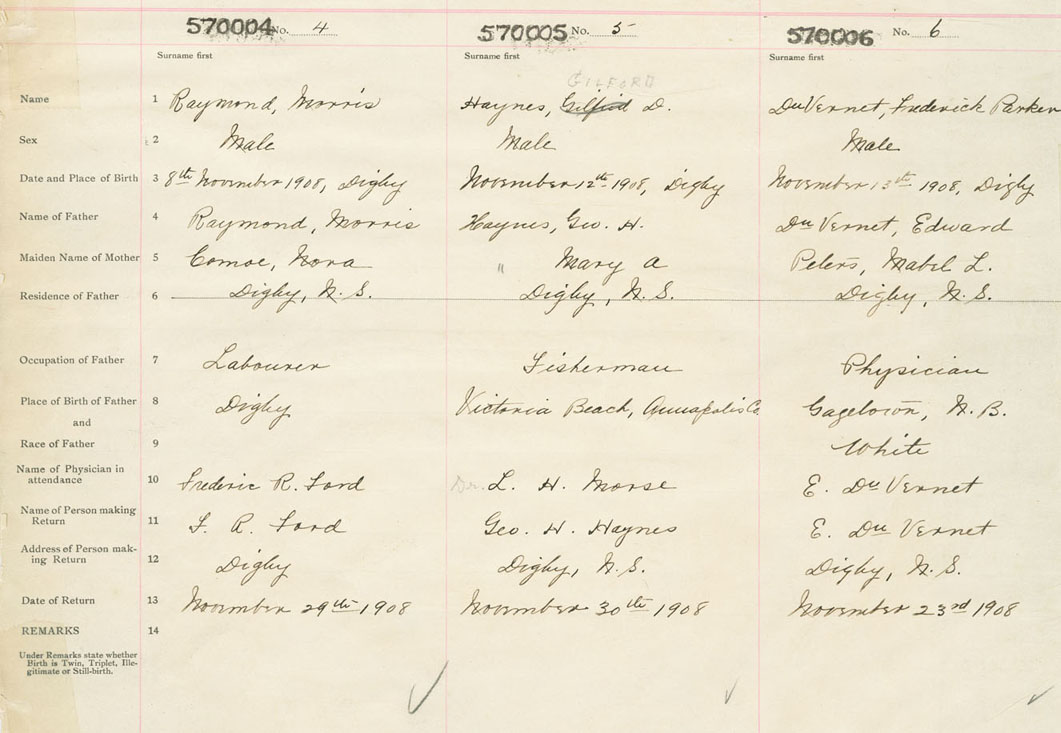 570004 No. 4 570005 No. 5 570006 No. 6
Surname first Surname first Surname first
GILFORD
Name 1 Raymond, Morris Haynes, Gilford D. DuVernet, Frederick Parker
Sex 2 Male Male Male
Date and Place of Birth 3 8th November 1908, Digby November 12th 1908, Digby November 13th 1908, Digby
Name of Father 4 Raymond, Morris Haynes, Geo. H. DuVernet, Edward
Maiden Name of Mother 5 Comoe, Nora " Mary A Peters, Mabel L.
Residence of Father 6 Digby, N.S. Digby, N.S. Digby, N.S.
Occupation of Father 7 Labourer Fisherman Physician
Place of Birth of Father 8 Digby Victoria Beach, Annapolis Co Gagetown, N.B.
and
Race of Father 9 White
Name of Physician in
attendance 10 Frederic R. Ford Dr. L. H. Morse E. DuVernet
Name of Person making
Return 11 F. R. Ford Geo. H. Haynes E. DuVernet
Address of Person mak-
ing Return 12 Digby Digby, N.S. Digby, N.S.
Date of Return 13 November 29th 1908 November 30th 1908 November 23rd 1908
REMARKS 14
Under Remarks state whether
Birth is Twin, Triplet, Ille-
gitimate or Still-birth.